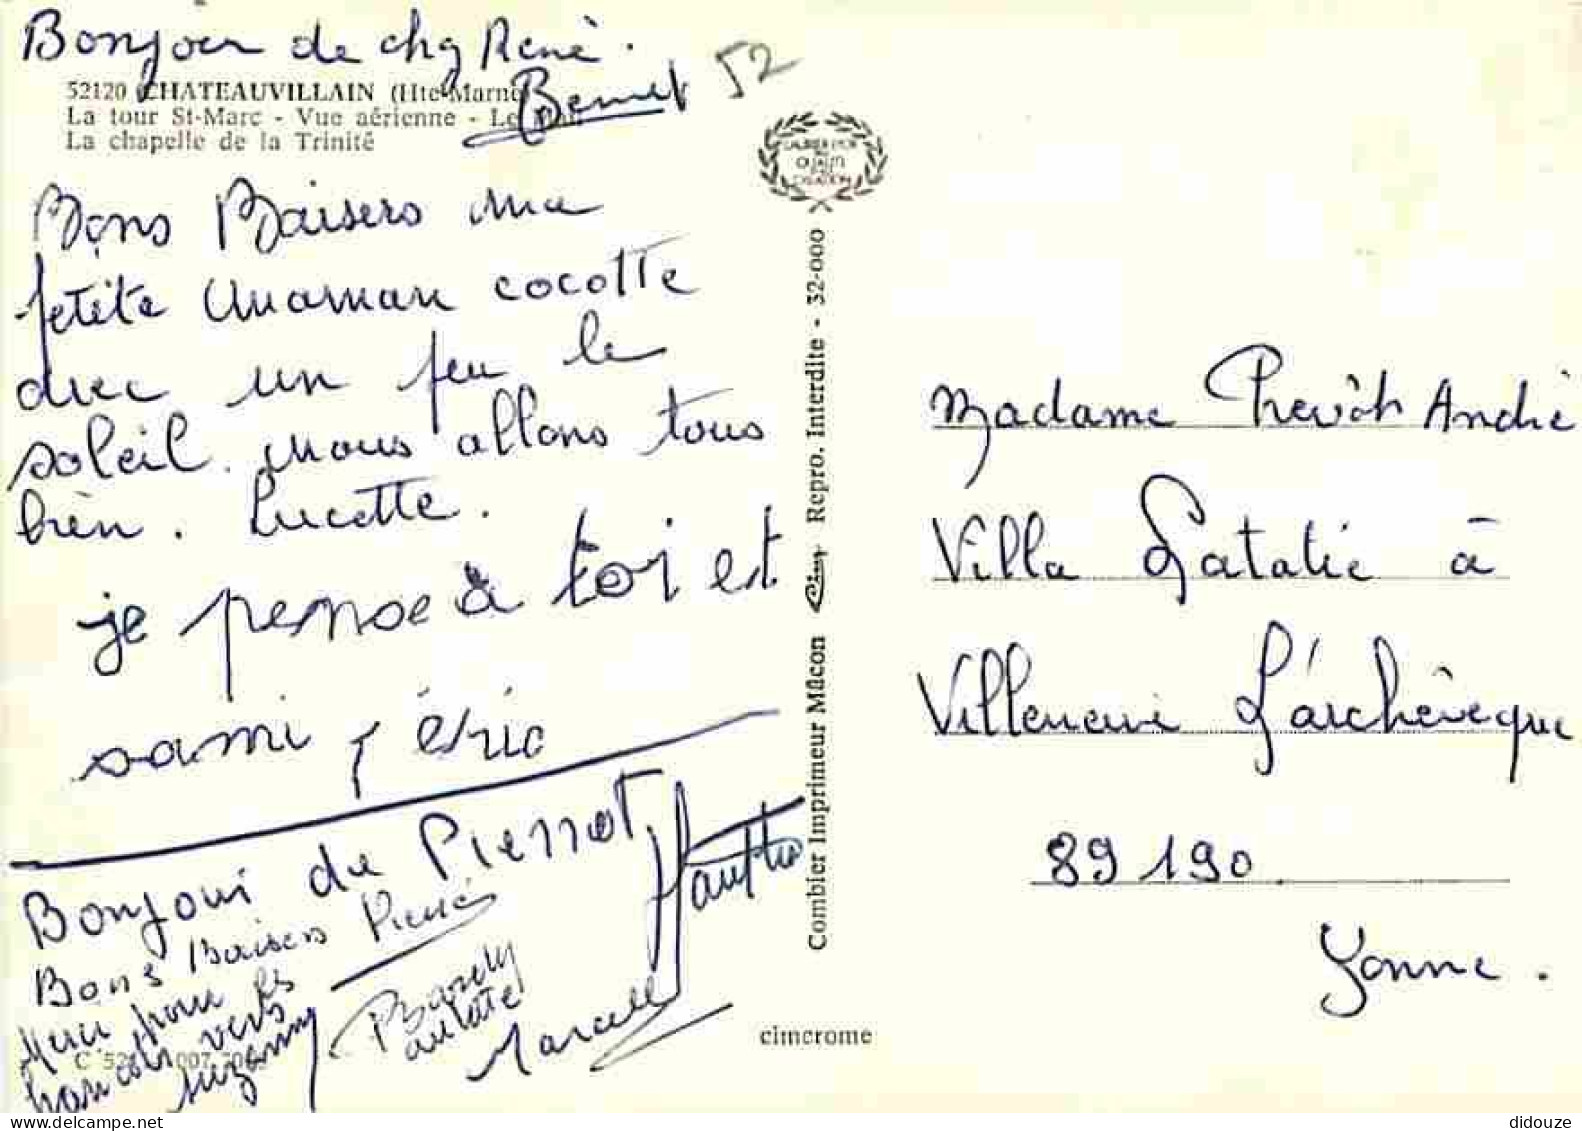 Bonjour de chg René.
52
52120 CHATEAUVILLAIN (Hte-Marne)
La tour St-Marc - Vue aérienne - Le Mail
La chapelle de la Trinité
LAURIER D'OR
QUALITÉ
CRÉATION
Bons Baisers ma
petite maman cocotte
avec un peu le
soleil. nous allons tous
bien. Lucette.
je pense a toi et
sami, éric
Bonjour du Pierrot
Bons Baisers Pierre
Merci pour les
haricots verts
suzanne
Marcelle
Combier Imprimeur Mâcon Cim Repro. Interdite - 32-000
cimcrome
Madame Prevôt André
Villa à
Villeneuve L'archevêque
89190
Yonne.
didouze